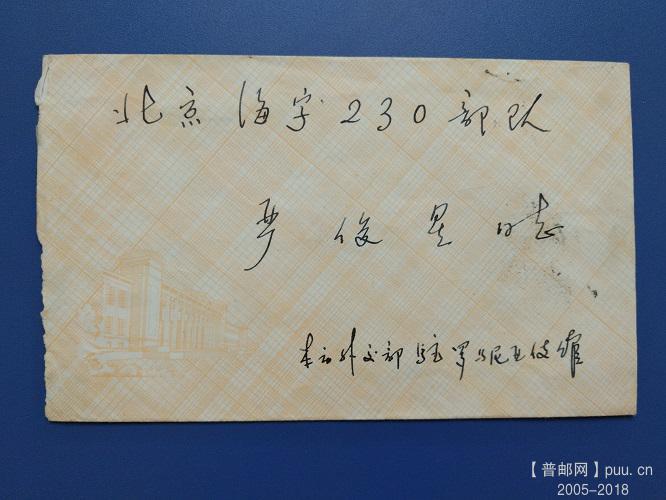 北京海字230部队
严俊昊同志
本市外交部驻罗马尼亚使馆
【普邮网】puu.cn
2005-2018